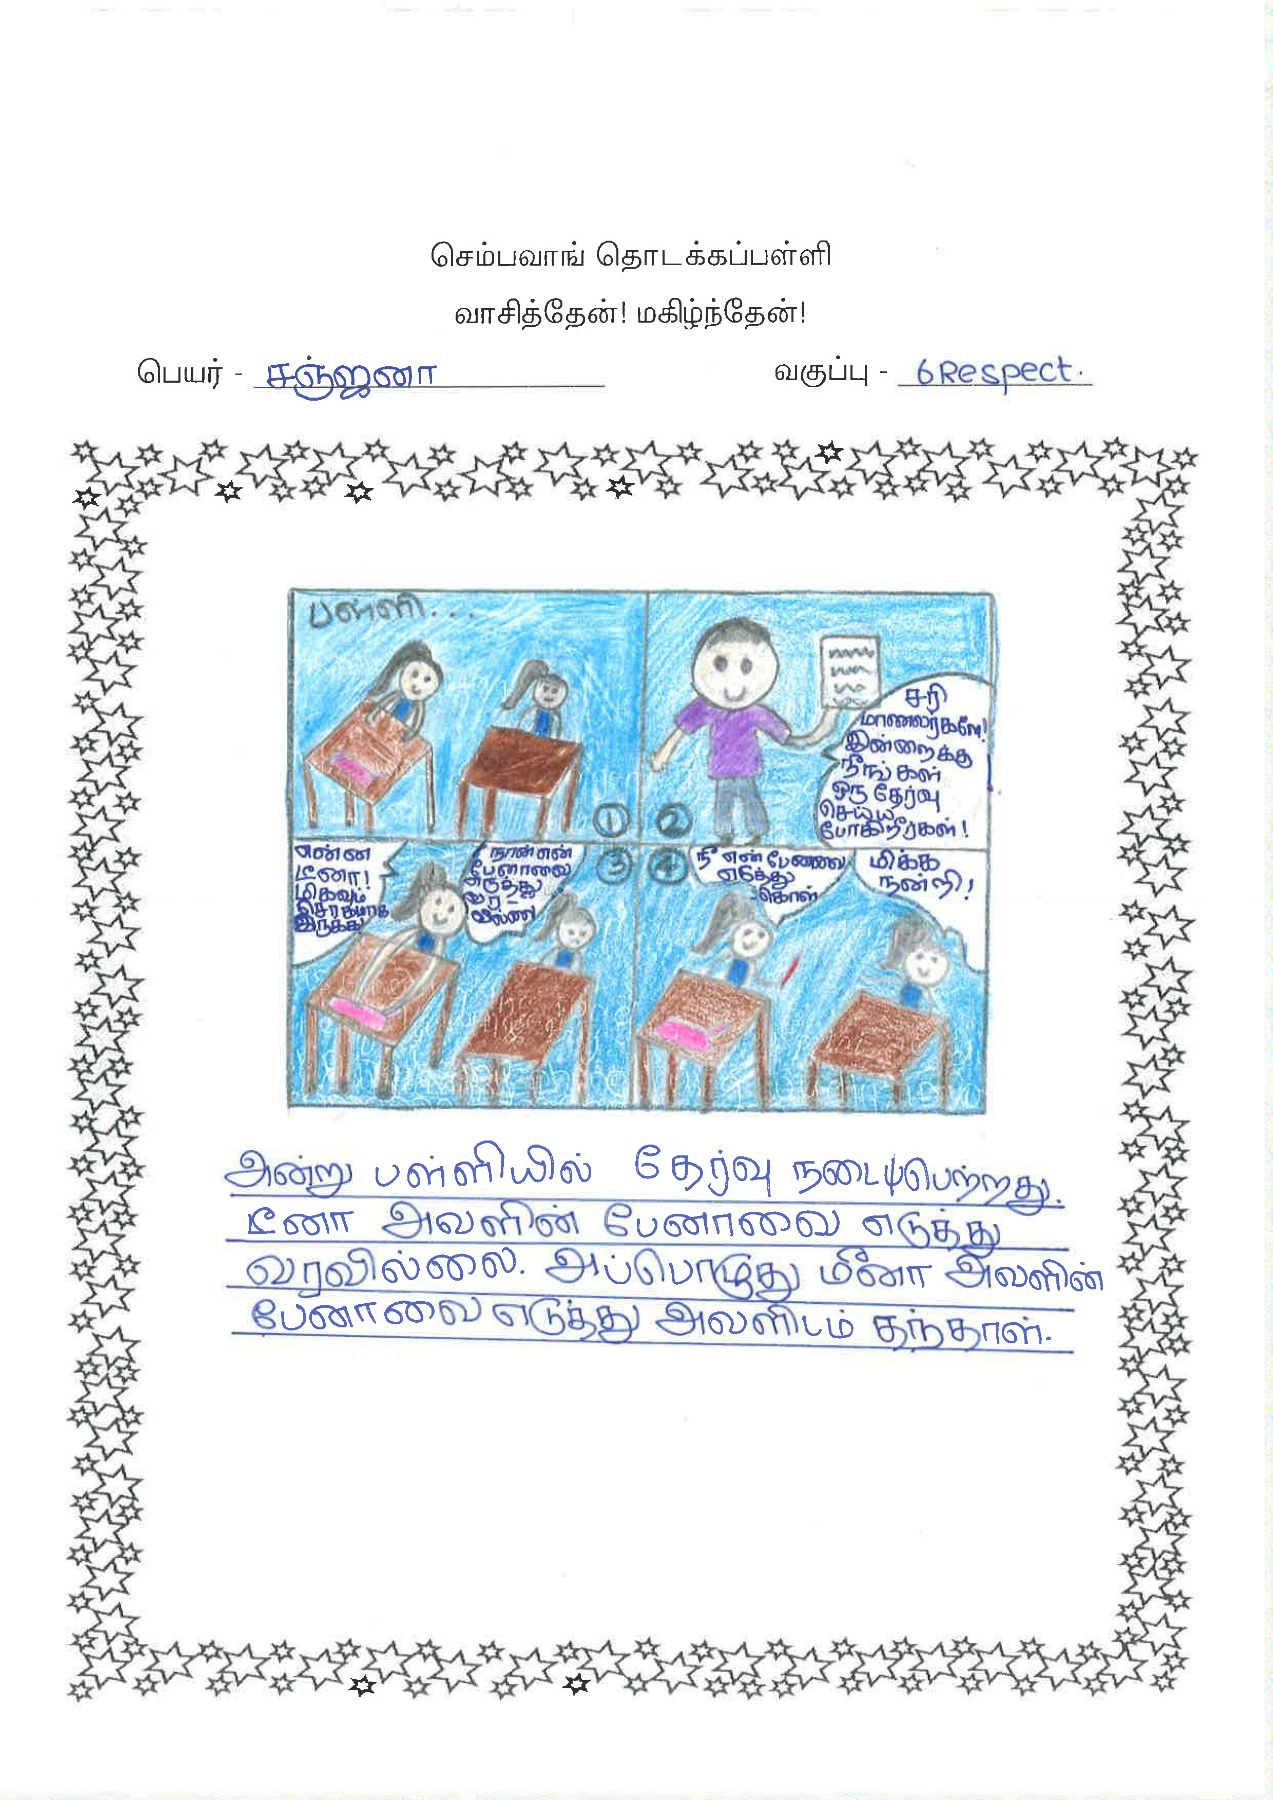 செம்பவாங் தொடக்கப்பள்ளி
வாசித்தேன்! மகிழ்ந்தேன்!
பெயர் - சஞ்ஜனா
வகுப்பு - 6Respect.
பள்ளி...
சரி
மாணவர்களே!
இன்றைக்கு
நீங்கள்
ஒரு தேர்வு
செய்ய
போகிறீர்கள்!
① ②
③ ④
என்ன
டீனா!
மிகவும்
சோகமாக
இருக்க
நான் என்
பேனாவை
எடுத்து
வர-
வில்லை
நீ என் பேனாவை
எடுத்து
கொள்
மிக்க
நன்றி!
அன்று பள்ளியில் தேர்வு நடைபெற்றது.
டீனா அவளின் பேனாவை எடுத்து
வரவில்லை. அப்பொழுது மீனா அவளின்
பேனாவை எடுத்து அவளிடம் தந்தாள்.